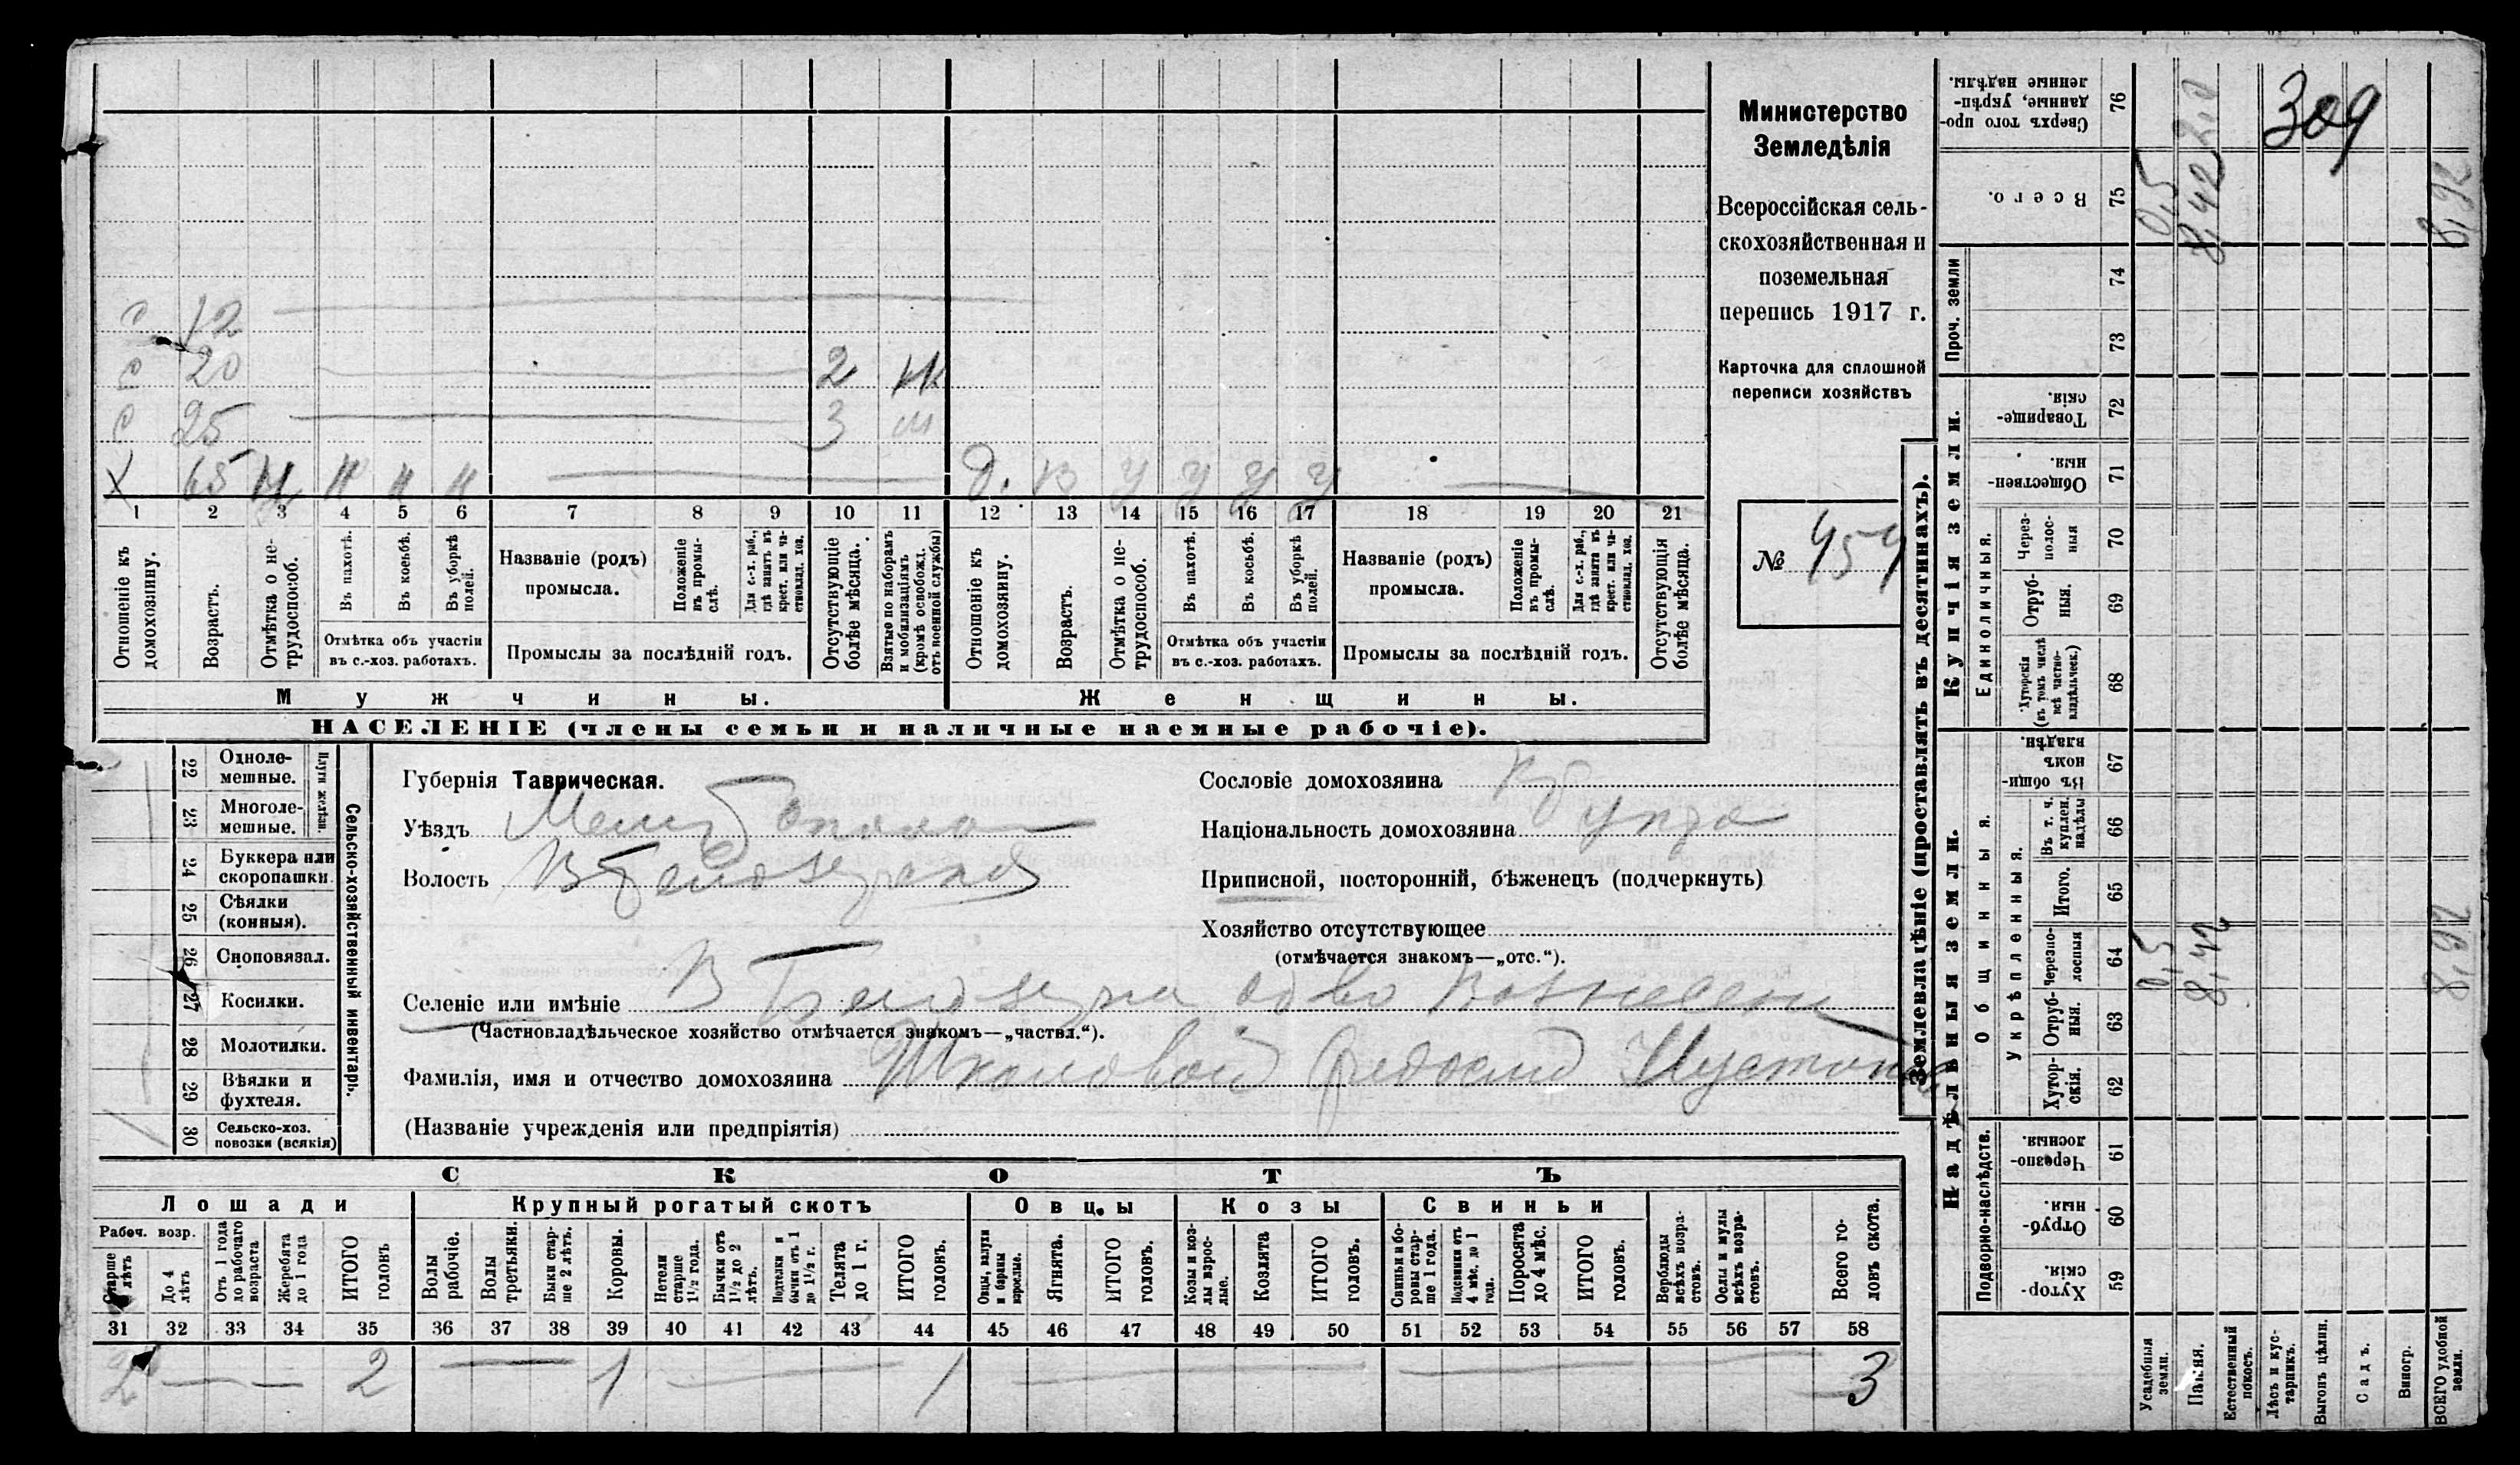 Министерство
Земледѣлія
Всероссійская сель-
скохозяйственная и
поземельная
перепись 1917 г.
Карточка для сплошной
переписи хозяйствъ
№ 459
с 12
с 20 2
с 25 3
Х 65 Н
1 2 3 4 5 6 7 8 9 10 11 12 13 14 15 16 17 18 19 20 21
Отношеніе къ домохозяину.
Возрастъ.
Отмѣтка о не-трудоспособ.
Въ пахотѣ.
Въ косьбѣ.
Въ уборкѣ полей.
Отмѣтка объ участіи
въ с.-хоз. работахъ.
Названіе (родъ)
промысла.
Положеніе въ промы-слѣ.
Для с.-х. раб., гдѣ занятъ въ крест. или ча-стновлад. хоз.
Промыслы за послѣдній годъ.
Отсутствующіе болѣе мѣсяца.
Взятые по наборамъ и мобилизаціямъ (кромѣ освобожд. отъ военной службы)
Отношеніе къ домохозяину.
Возрастъ.
Отмѣтка о не-трудоспособ.
Въ пахотѣ.
Въ косьбѣ.
Въ уборкѣ полей.
Отмѣтка объ участіи
въ с.-хоз. работахъ.
Названіе (родъ)
промысла.
Положеніе въ промы-слѣ.
Для с.-х. раб., гдѣ занята въ крест. или ча-стновлад. хоз.
Промыслы за послѣдній годъ.
Отсутствующія болѣе мѣсяца.
Мужчины. Женщины.
НАСЕЛЕНІЕ (члены семьи и наличные наемные рабочіе).
Сельско-хозяйственный инвентарь.
Плуги желѣзн.
22 Однолемешные.
23 Многолемешные.
24 Буккера или скоропашки.
25 Сѣялки (конныя).
26 Сноповязал.
27 Косилки.
28 Молотилки.
29 Вѣялки и фухтеля.
30 Сельско-хоз. повозки (всякія)
Губернія Таврическая.
Уѣздъ
Волость
Сословіе домохозяина
Національность домохозяина
Приписной, посторонній, бѣженецъ (подчеркнуть)
Хозяйство отсутствующее
(отмѣчается знакомъ—„отс.“).
Селеніе или имѣніе В Белозерка
(Частновладѣльческое хозяйство отмѣчается знакомъ—„частвл.“).
Фамилія, имя и отчество домохозяина Школовой Федосий
(Названіе учрежденія или предпріятія)
СКОТЪ
Лошади Крупный рогатый скотъ Овцы Козы Свиньи
Рабоч. возр.
Старше 4 лѣтъ
До 4 лѣтъ
Отъ 1 года до рабочаго возраста
Жеребята до 1 года
ИТОГО головъ
Волы рабочіе.
Волы третьяки.
Быки стар-ше 2 лѣтъ.
Коровы.
Нетели старше 1½ года.
Бычки отъ 1½ до 2 лѣтъ.
Подтелки и бычки отъ 1 до 1½ г.
Телята до 1 г.
ИТОГО головъ.
Овцы, валухи и бараны взрослые.
Ягнята.
ИТОГО головъ.
Козы и коз-лы взрос-лые.
Козлята
ИТОГО головъ.
Свиньи и бо-ровы стар-ше 1 года.
Подсвинки отъ 4 мѣс. до 1 года.
Поросята до 4 мѣс.
ИТОГО головъ.
Верблюды всѣхъ возра-стовъ.
Ослы и мулы всѣхъ возра-стовъ.
Всего го-ловъ скота.
31 32 33 34 35 36 37 38 39 40 41 42 43 44 45 46 47 48 49 50 51 52 53 54 55 56 57 58
2 — — 2 — 1 — 1 — — 3
Землевладѣніе (проставлять въ десятинахъ).
Надѣльныя земли. Купчія земли. Проч. земли
Подворно-наслѣдств.
Общинныя.
Укрѣпленныя.
Единоличныя.
59 Хутор-скія.
60 Отруб-ныя.
61 Черезпо-лосныя.
62 Хутор-скія.
63 Отруб-ныя.
64 Черезпо-лосныя 0,5 8,42 8,92
65 Итого.
66 Въ т. ч. куплен. надѣлы
67 Въ общин-номъ владѣн.
68 Хуторскія (въ томъ числѣ всѣ частно-владѣльческ.)
69 Отруб-ныя.
70 Через-полос-ныя
71 Обществен-ныя.
72 Товарище-скія.
73
74
75 Всего. 0,5 8,42 8,92
76 Сверхъ того про-данные, укрѣп-ленные надѣлы. 2,0
309
Усадебныя земли.
Пашня.
Естественный покосъ.
Лѣсъ и кус-тарникъ.
Выгонъ цѣлин.
Садъ.
Виногр.
ВСЕГО удобной земли.